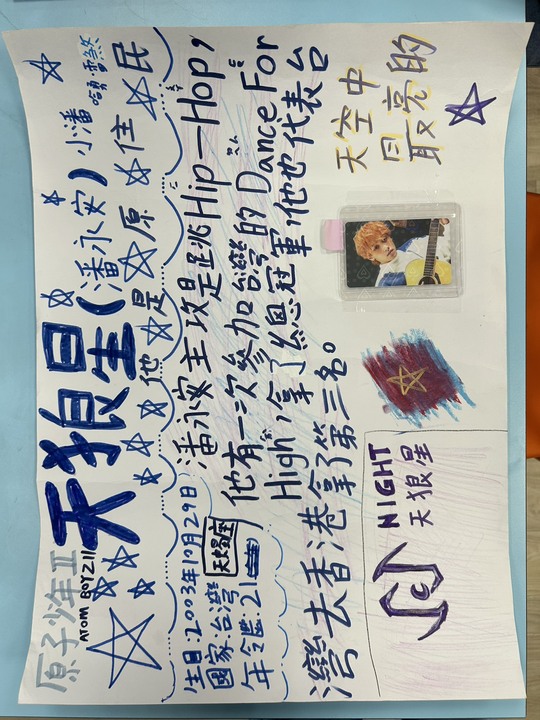 原子少年II
ATOM BOYZ II
天狼星(潘永安) 小潘
他是原住民
生日:2003年10月29日
國家:台灣
天蠍座
年齡:21
潘永安主攻是跳Hip-Hop,
他有一次參加台灣的Dance For
High,拿了總冠軍,他也代表台
灣去香港拿了第三名。
NIGHT
天狼星
天空中
最亮的